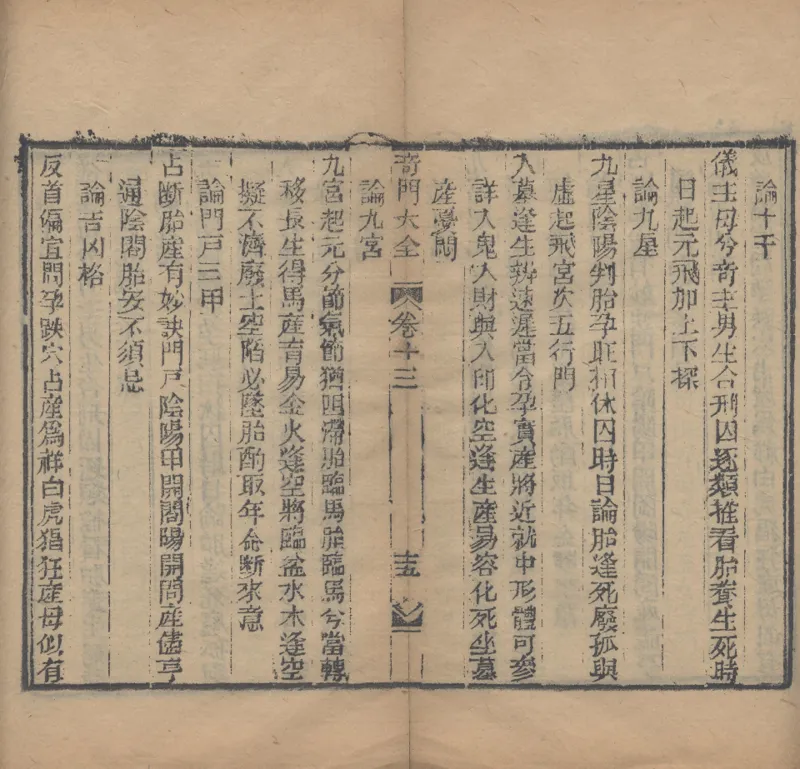 論十干
儀主母兮奇主男生合刑囚逐類推看胎養生死時
日起元飛加上下探
論九星
九星陰陽判胎孕旺相休囚時日論胎逢死廢孤與
虛起飛宮次五行門
入墓逢生辨速遲當令孕實產將近就中形體可參
詳入鬼入財與入印化空逢生產易容化死坐墓
產憂悶
奇門大全 卷十三 十五
論九宮
九宮起元分節氣節猶四滯胎臨馬胎臨馬兮當轉
移長生得馬產育易金火逢空將臨盆水木逢空
擬不濟廢土空陷必墜胎酌取年命斷來意
論門戶三甲
占斷胎產有妙訣門戶陰陽甲開闔陽開問產儘亨
通陰闔胎安不須忌
論吉凶格
反首偏宜問孕跌穴占產為祥白虎猖狂產母似有